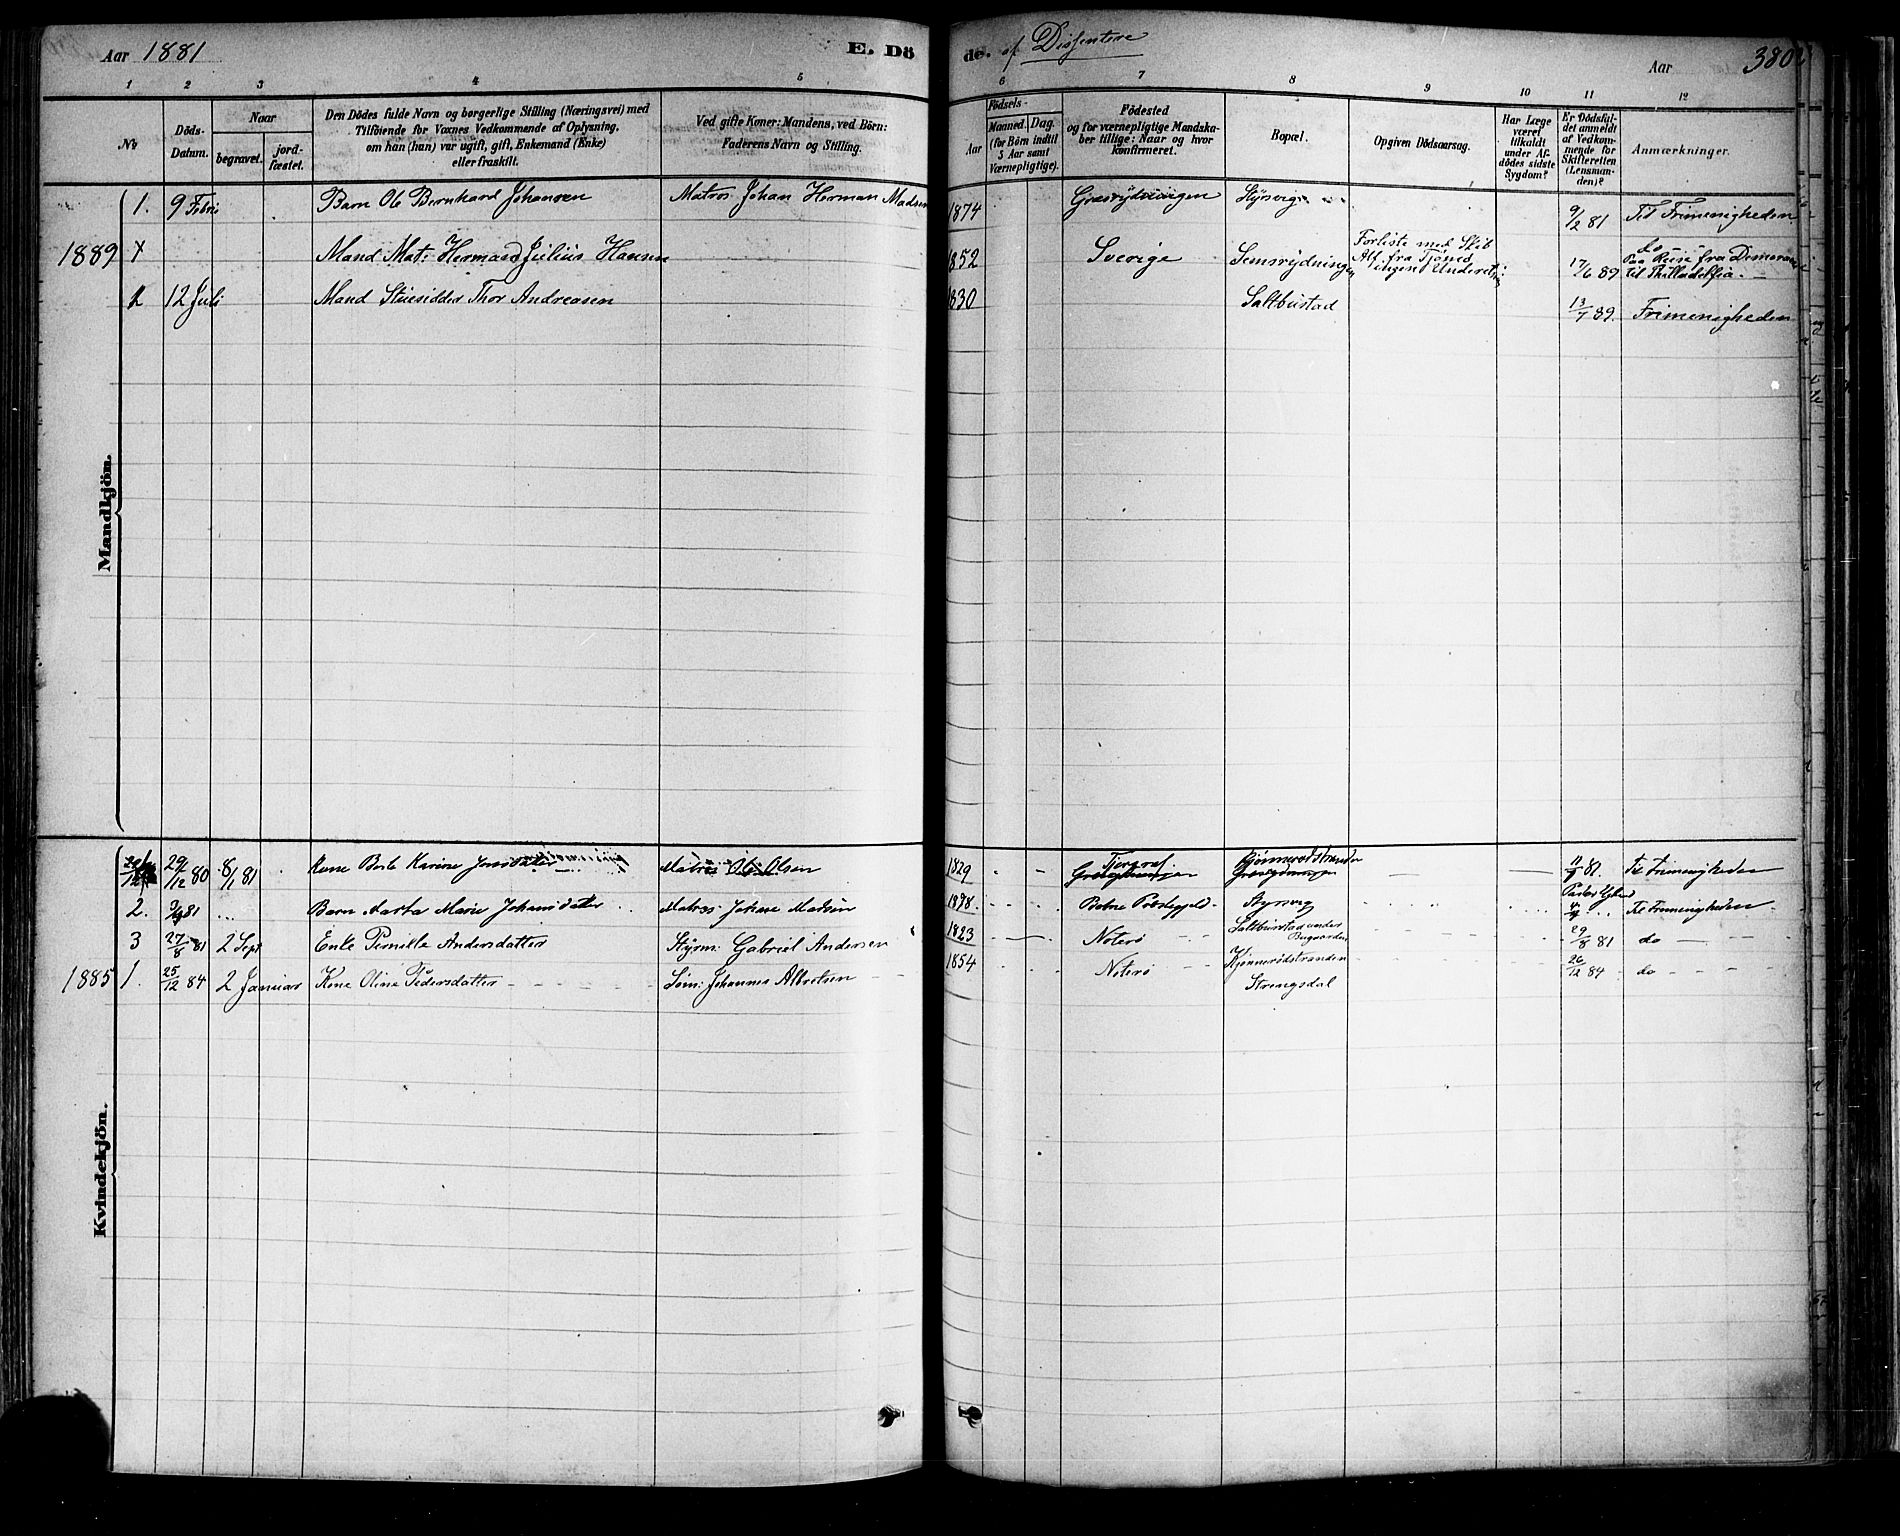 Aar 1881
E. Dö
de. af Dissentere
Aar
380
1 2 3 4 5
6 7 8 9 10 11 12
No
Döds-Datum.
Naar
begravet.
jord-fæstet.
Den Dödes fulde Navn og borgerlige Stilling (Næringsvei) med
Tilföiende for Voxnes Vedkommende af Oplysning,
om han (hun) var ugift, gift, Enkemand (Enke)
eller fraskilt.
Ved gifte Koner: Mandens, ved Börn:
Faderens Navn og Stilling.
Födsels-
Aar
Maaned. Dag.
(for Börn indtil
5 Aar samt
Værnepligtige).
Födested
og for værnepligtige Mandska-
ber tillige: Naar og hvor
konfirmeret.
Bopæl.
Opgiven Dödsaarsag.
Har Læge
været
tilkaldt
under Af-
dödes sidste
Sygdom?
Er Dödsfal-
det anmeldt
af Vedkom-
mende for
Skifteretten
(Lensman-
den)?
Anmærkninger.
Mandkjön.
1. 9 Febr Barn Ole Bernhard Johansen Matros Johan Herman Madsen 1874 Græsrydningen Styrsvig 9/2 81 Til Frimenigheden
1889 X Mand Mat: Herman Julius Hansen 1852 Sverige Semsrydningen Forliste med Skib Alf. fra Tjømø ingen Underetn: 17/6 89 do Paa Reise fra Demerara til Philladelfia.
2 12 Juli Mand Stuesidder Thor Andreasen 1830 Saltbustad 13/7 89. Frimenigheden
Kvindekjön.
29/12 80 8/1 81 Kone Berte Karine Jensdatter Matros Ole Olsen 1829 Kjönnerødstranden 81. Til Frimenigheden
2. 81 Barn Marta Marie Johansdatter Matros Johan Madsen Styrsvig Til Frimenigheden
3 27/8 81 2 Sept Enke Pernille Andersdatter Styrm: Gabriel Andersen 1823 Noterø Saltbustad under Bugaarden 29/8 81 do
1885 1. 25/12 84 2 Januar Kone Oline Pedersdatter Søm: Johannes Albretsen 1854 Noterø Kjønnerødstranden Strengsdal 26/12 84 do